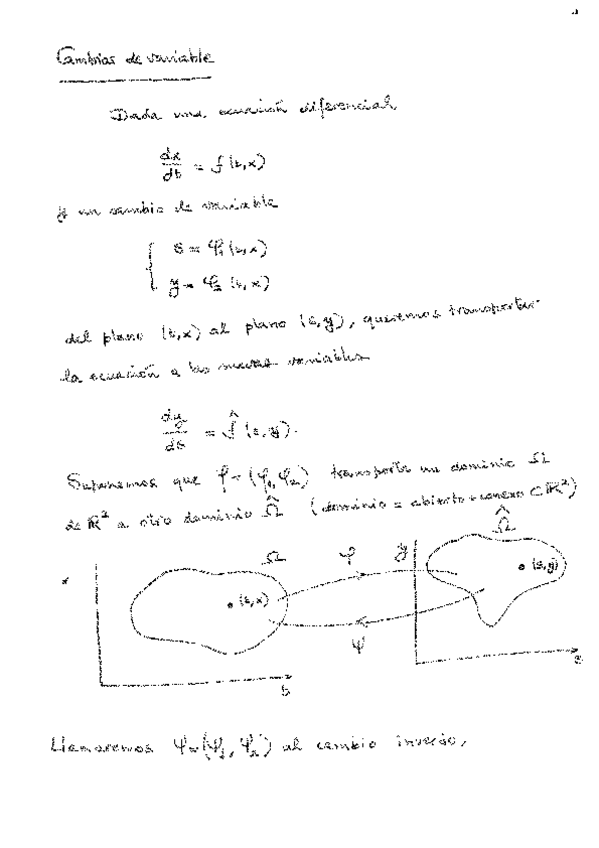 Cambios de variable
Dada una ecuación diferencial
dx/dt = f(t,x)
y un cambio de variable
{ s = φ₁(t,x)
y = φ₂(t,x)
del plano (t,x) al plano (s,y), queremos transportar
la ecuación a las nuevas variables
dy/ds = f̂(s,y).
Suponemos que φ = (φ₁,φ₂) transporta un dominio Ω
de ℝ² a otro dominio Ω̂ (dominio = abierto + conexo ⊂ ℝ²)
Ω φ y Ω̂
x (t,x) (s,y)
ψ
t s
Llamaremos ψ = (ψ₁, ψ₂) al cambio inverso,